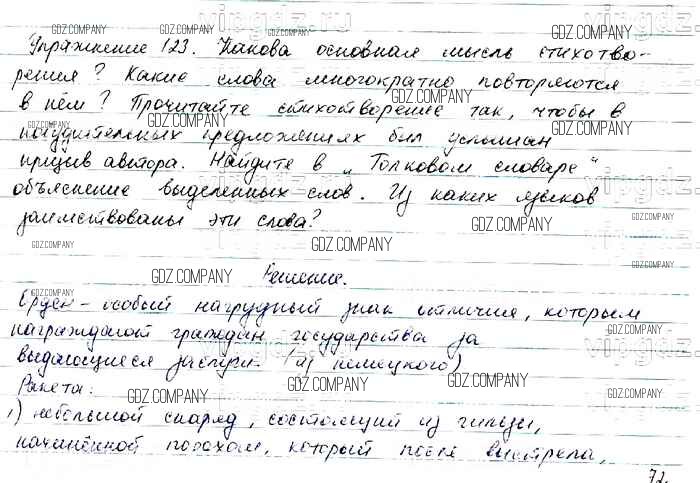 Упражнение 123. Какова основная мысль стихотво-
рения? Какие слова многократно повторяются
в нём? Прочитайте стихотворение так, чтобы в
побудительных предложениях был услышан
призыв автора. Найдите в „Толковом словаре"
объяснение выделенных слов. Из каких языков
заимствованы эти слова?
Решение.
Орден - особый нагрудный знак отличия, которым
награждают граждан государства за
выдающиеся заслуги. (из немецкого)
Ракета:
1) небольшой снаряд, состоящий из гильзы,
начинённой порохом, который после выстрела,
72.
GDZ.COMPANY
vipgdz.ru